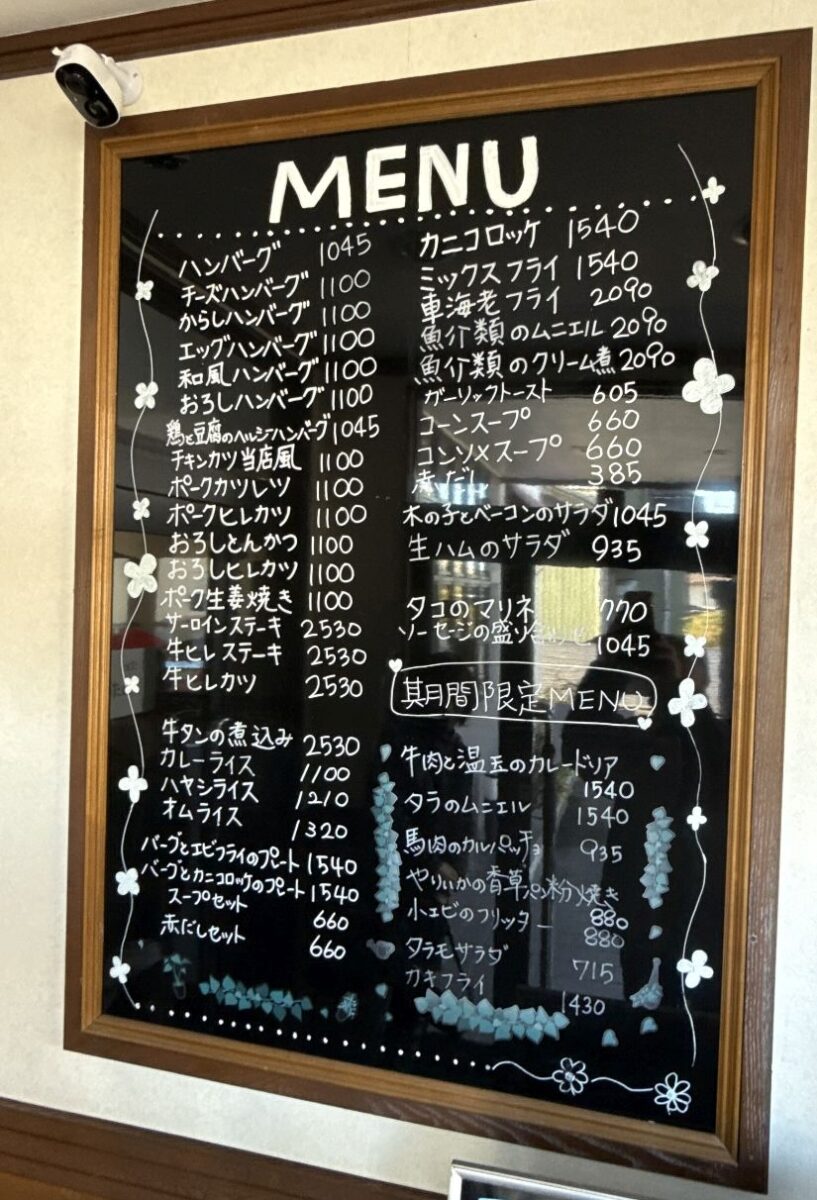 MENU
ハンバーグ 1045
チーズハンバーグ 1100
からしハンバーグ 1100
エッグハンバーグ 1100
和風ハンバーグ 1100
おろしハンバーグ 1100
鶏と豆腐のヘルシーハンバーグ 1045
チキンカツ当店風 1100
ポークカツレツ 1100
ポークヒレカツ 1100
おろしとんかつ 1100
おろしヒレカツ 1100
ポーク生姜焼き 1100
サーロインステーキ 2530
牛ヒレステーキ 2530
牛ヒレカツ 2530
牛タンの煮込み 2530
カレーライス 1100
ハヤシライス 1210
オムライス 1320
バーグとエビフライのプレート 1540
バーグとカニコロッケのプレート 1540
スープセット 660
赤だしセット 660
カニコロッケ 1540
ミックスフライ 1540
車海老フライ 2090
魚介類のムニエル 2090
魚介類のクリーム煮 2090
ガーリックトースト 605
コーンスープ 660
コンソメスープ 660
赤だし 385
木の子とベーコンのサラダ 1045
生ハムのサラダ 935
タコのマリネ 770
ソーセージの盛り合わせ 1045
期間限定MENU
牛肉と温玉のカレードリア
1540
タラのムニエル 1540
馬肉のカルパッチョ 935
やりいかの香草パン粉焼き
880
小エビのフリッター 880
タラモサラダ 715
カキフライ 1430